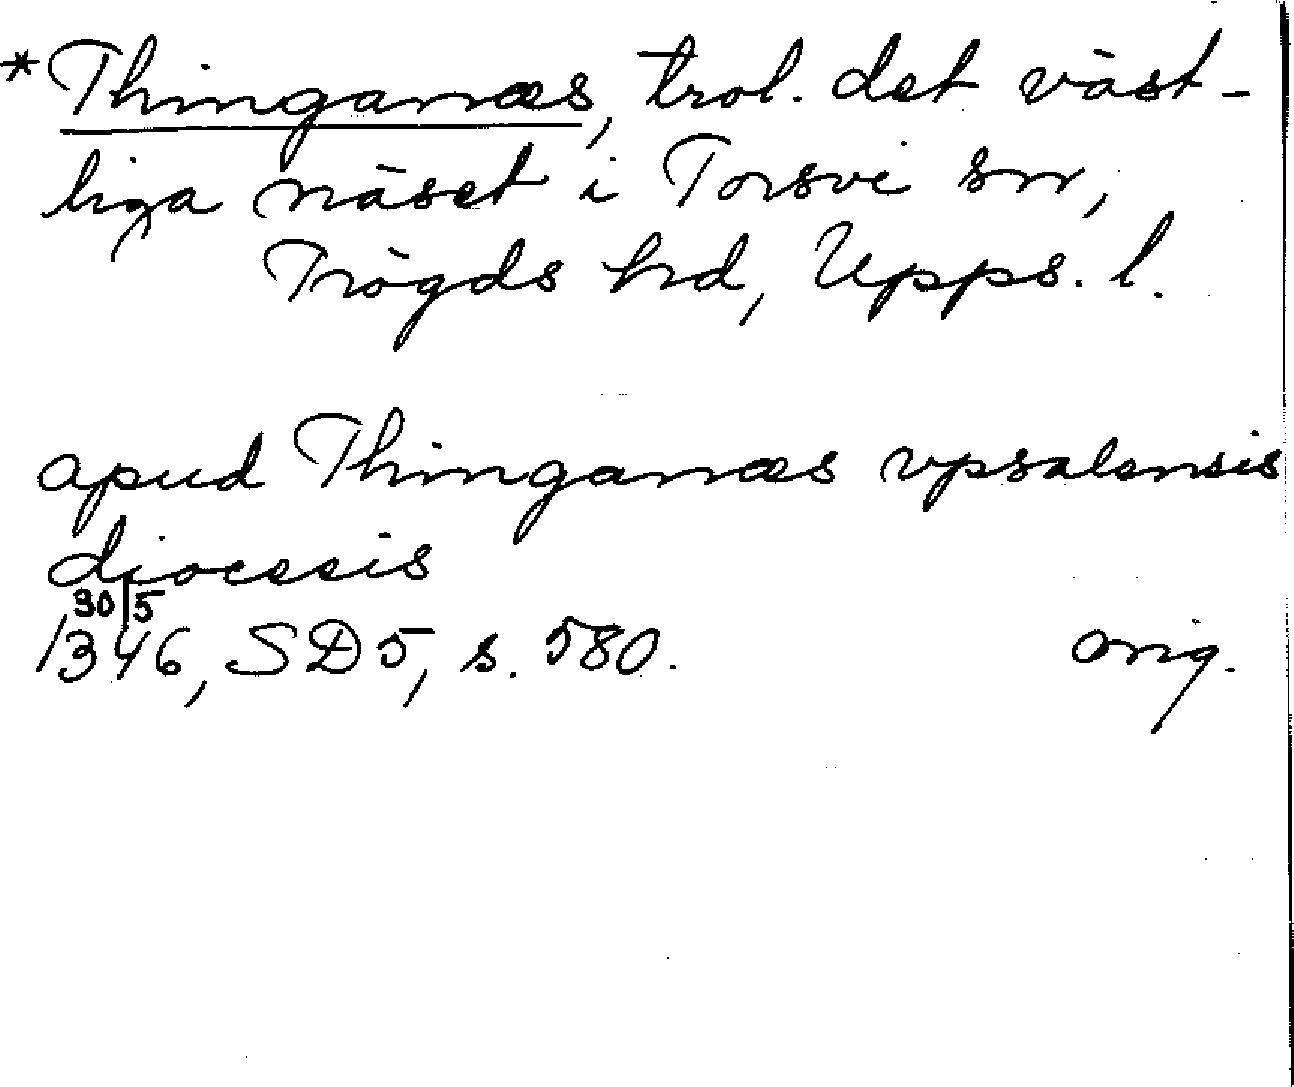 *Thinganæs, trol. det väst-
liga näset i Torsvi sn,
Trögds hd, Upps. l.
apud Thinganæs vpsalensis
djocesis
30/5
1346, SD 5, s. 580. orig.